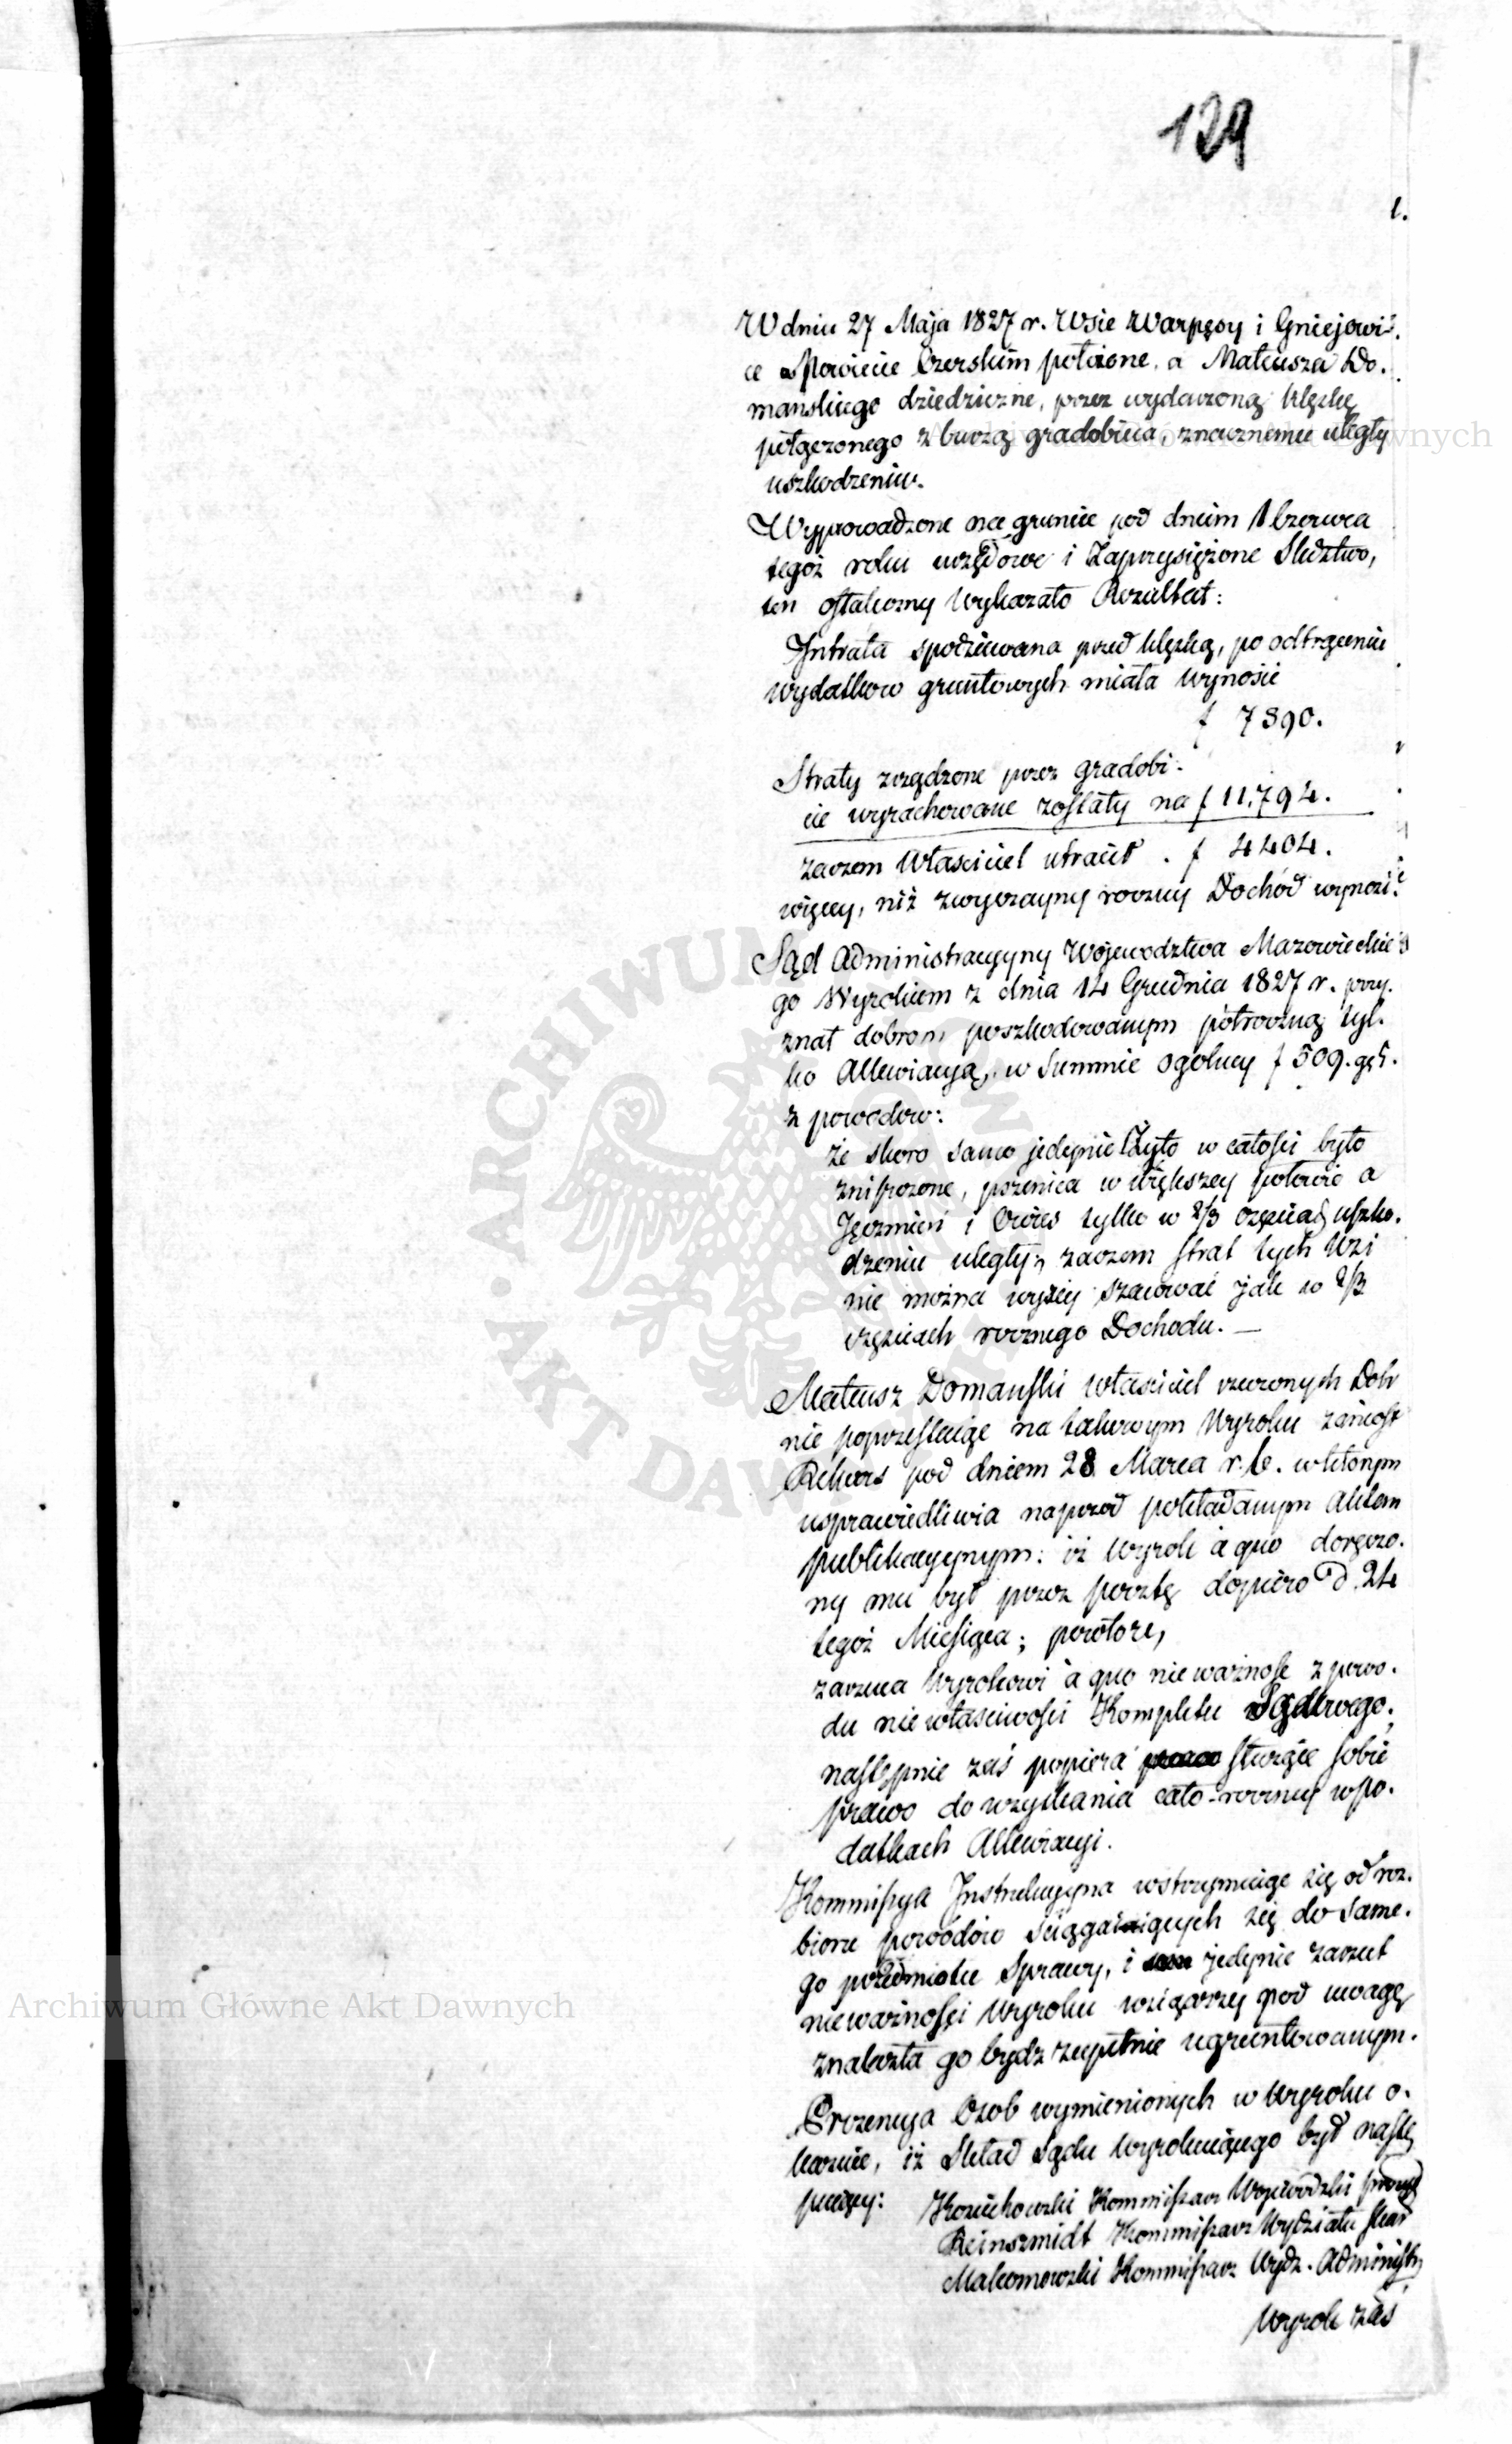 129
1.
W dniu 27 Maja 1827 r. Wsie Warpęsy i Gniejowi-
ce w Powiecie Czerskim położone, a Mateusza Do-
manskiego dziedziczne, przez wydarzoną klęskę
połączonego z burzą gradobicia, znacznemu uległy
uszkodzeniu.
Wyprowadzone na gruncie pod dniem 1 Czerwca
tegoż roku urzędowe i Zaprzysiężone Śledztwo,
ten ostateczny wykazało Rezultat:
Intrata spodziewana przed klęską, po odtrąceniu
wydatkow gruntowych miała wynosić
f 7390.
Straty zrządzone przez gradobi-
cie wyrachowane zostały na f 11,794.
zaczem Właściciel utracił . f 4404.
więcey, niż zwyczayny roczny Dochód wynosi.
Sąd Administracyyny Woiewodztwa Mazowieckie-
go Wyrokiem z dnia 14 Grudnia 1827 r. przy-
znał dobrom poszkodowanym półroczną tyl-
ko Allewiacyą, w Summie ogolney f 509. g 5.
z powodow:
że skoro samo jedynie Żyto w całości było
zniszczone, pszenica w większey połowie a
Jęczmień i Owies tylko w 2/3 częściach uszko-
dzeniu uległy; zaczem strat tych Wsi
nie można wyżey szacować jak w 2/3
częściach rocznego Dochodu. —
Mateusz Domański właściciel rzeczonych Dóbr
nie poprzestaiąc na takowym Wyroku zaniosł
Rekurs pod dniem 28 Marca r. b. w którym
usprawiedliwia naprzod pokładanym Aktem
publikacyynym: iż Wyrok à quo doręczo-
ny mu był przez pocztę dopiero d. 24
tegoż Miesiąca; powtore,
zarzuca Wyrokowi à quo nieważność z powo-
du niewłaściwości Kompletu Sądowego;
następnie zaś popiera służące sobie
prawo do uzyskania cało-roczney w po-
datkach Allewiacyi.
Kommissya Instrukcyyna wstrzymuiąc się od roz-
bioru powodów ściągaiących się do same-
go przedmiotu Sprawy, i jedynie zarzut
nieważności Wyroku wziąwszy pod uwagę
znalazła go bydz zupełnie ugruntowanym.
Prezencya Osob wymienionych w Wyroku o-
kazuie, iż Skład Sądu wyrokuiącego był nastę-
puiący: Kożuchowski Kommissarz Woiewodzki prezyd
Reinszmidt Kommissarz Wydziału skar
Makomowski Kommissarz Wydz. Administr
Wyrok zaś
Archiwum Główne Akt Dawnych
Archiwum Główne Akt Dawnych
ARCHIWUM GŁÓWNE AKT DAWNYCH